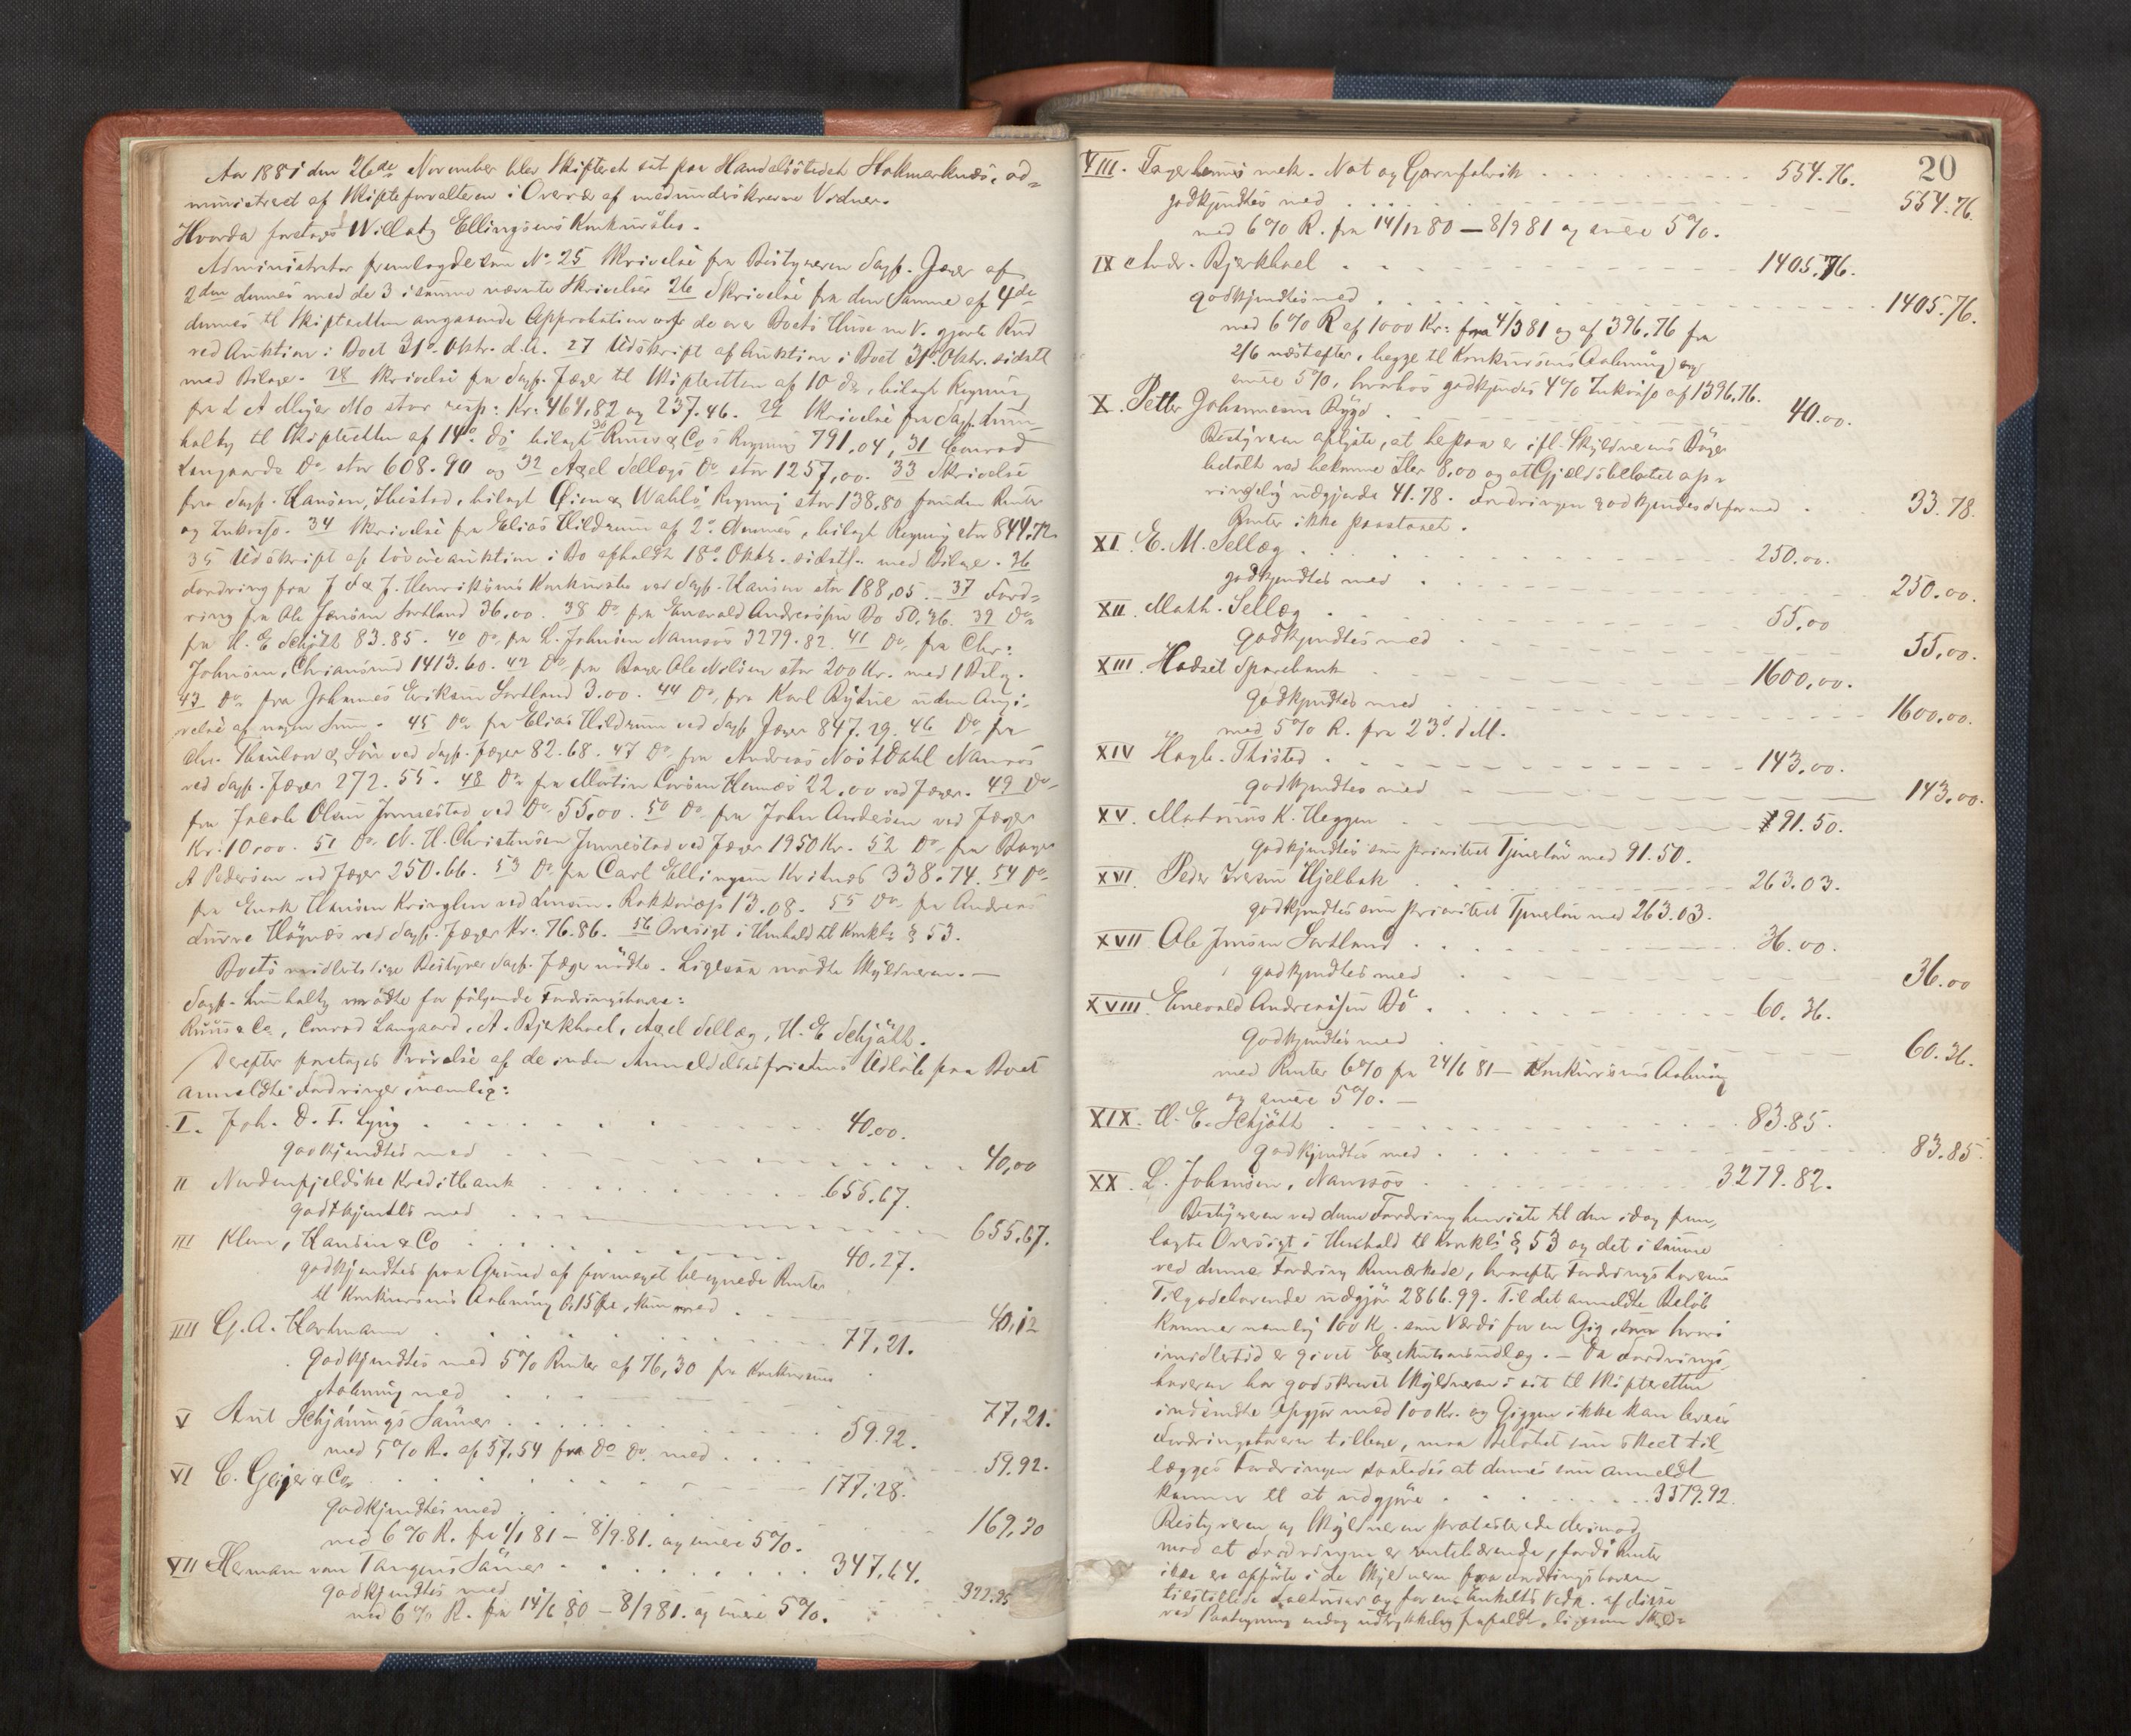 Aar 1881 den 26de November blev Skifteret sat paa Handelsstedet Stokmarknæs, ad=
ministreret af Skifteforvalteren i Overvær af medunderskrevne Vidner.
Hvorda foretoges Willatz Ellingsens Konkursbo.
Administrator fremlagde som No 25 Skrivelse fra Bestyreren Sagf. Jæger af
2den dennes med de 3 i samme nævnte Skrivelser 26 Skrivelse fra den Samme af 4de
dennes til Skifteretten angaaende Approbation de over Boets Huse m V. gjorte Bud
ved Auktion i Boet 31te Oktr. d.A. 27 Udskrift af Auktion i Boet 31te Oktr. sidstl
med Bilage. 28 Skrivelse fra Sagf. Jæger til Skifteretten af 10 ds, bilagt Regning
fra L A Meyer Mo stor resp: Kr: 464,82 og 237.46. 29 Skrivelse fra Sagf. Lum-
holtz til Skifteretten af 14de ds bilagt 30 Ruus & Co s Regning 791.04, 31 Conrad
Langaards Do stor 608.90 og 32 Axel Sellægs Do stor 1257,00. 33 Skrivelse
fra Sagf. Hansen, Thistad, bilagt Øien & Wahls Regning stor 138,80 foruden Renter
og Inkasso. 34 Skrivelse fra Elias Hildrum af 2de dennes, bilagt Regning stor 844.72
35 Udskrift af Løsøreauktion i Bo afholdt 18de Oktr. sidstl. med Bilage. 36
Fordring fra J. Henriksens Konkursbo ved Sagf. Hansen stor 188,05. 37 Ford=
ring fra Ole Jensen Sortland 36.00. 38 Do fra Enevald Andreassen Bø 50.36. 39 Do
fra H. E Schjött 83.85. 40 Do fra L. Johnsen Namsos 3279.82. 41 Do fra Chr:
Johnsen, Chriansund 1413.60. 42 Do fra Bager Ole Nilsen stor 200 Kr. med 1 Bilag.
43 Do fra Johannes Eriksen Sortland 3.00. 44 Do fra Karl uden Angi-
velse af nogen Sum. 45 Do fra Elias Hildrum ved Sagf. Jæger 847.29. 46 Do fra
Chr. Thaulow & Søn ved Sagf. Jæger 82.68. 47 Do fra Andreas Nöst Dahl Namsos
ved Sagf. Jæger 272.55. 48 Do fra Martin Larsen Hennes 22.00 ved Jæger. 49 Do
fra Jacob Olsen Jennestad ved Do 55,00. 50 Do fra John Andersen ved Jæger
Kr: 10,00. 51 Do N. H. Christensen Jennestad ved Jæger 1950 Kr. 52 Do fra Bager
A Pedersen ved Jæger 250.66. 53 Do fra Carl Ellingsen Kvitnæs 338.74. 54 Do
fra Enok Hansen Kringlen ved 13.08. 55 Do fra Andreas
Høgnæs ved Sagf. Jæger Kr. 76.86. 56 Oversigt i Henhold til Konkl: § 53.
Boets midlertidige Bestyrer Sagf. Jæger mödte. Ligesaa mödte Skyldneren.
Sagf. Lumholtz mödte for følgende Fordringshavere:
Ruus & Co, Conrad Langaard, A. Bjerkhoel, Axel Sellæg, H. E Schjött.
Derefter foretoges Prøvelse af de inden Anmeldelsesfristens Udløb paa Boet
anmeldte Fordringer, nemlig:
I. Joh. D. F. Lysig 40,00.
godkjendtes med 40,00
II Nordenfjeldske Kreditbank 655.67.
godkjendtes med 655,67.
III Klem, Hansen & Co 40.27.
godkjendtes paa Grund af formeget beregnede Renter
til Konkursens Aabning 0.15 Øre, kun med 40,12
IIII G. A. Hartmann 77,21.
godkjendtes med 5% Renter af 76,30 fra Konkursens
Aabning med 77,21.
V Ant Schjönings Sønner 59.92.
med 5% R. af 57.54 fra Do Do. med 59.92.
VI C. Geijer & Co 177,28.
godkjendtes med 169,30
med 6% R. fra 1/1 81 – 8/9.81. og senere 5%.
VII Herman von Tangens Sønner 347.64.
godkjendtes med 322.25
med 6% R. fra 14/6 80 – 8/9 81. og senere 5%.
20
VIII. Fagerheims mek. Not og Garnfabrik 554.76.
godkjendtes med 554.76.
med 6% R. fra 14/12 80 – 8/9 81 og senere 5%.
IX Andr. Bjerkhoel 1405.76.
godkjendtes med 1405.76.
med 6% R af 1000 Kr: fra 4/3 81 og af 396.76 fra
2/6 næstefter, begge til Konkursens Aabning og
senere 5%, hvorhos godkjendes 4% Inkasso af 1396.76.
X. Petter Johannesen Bygd 40.00.
Bestyreren oplyste, at herpaa er ifl. Skyldnerens Bøger
betalt ved bekomne Sko 8.00 og at Gjeldsbeløbet op-
rindelig udgjorde 41.78. Fordringen godkjendes derfor med 33.78.
Renter ikke paastaaet.
XI. E. M. Sellæg 250.00.
godkjendtes med 250.00.
XII. Math. Sellæg 55,00
godkjendtes med 55,00.
XIII. Hadsel Sparebank 1600,00.
godkjendtes med 1600,00.
med 5% R. fra 23de d. M.
XIV Hagb. Thisted 143,00.
godkjendtes med 143,00.
XV. Martinus K. Heggen 91.50.
godkjendtes som prioriteret Tjenerløn med 91.50.
XVI. Peder Iversen Hjelbak 263.03.
godkjendtes som prioriteret Tjenerløn med 263.03.
XVII Ole Jensen Sortland 36.00.
godkjendtes med 36.00
XVIII. Enevald Andreassen Bø 60.36.
godkjendtes med 60.36.
med Renter 6% fra 24/6 81 – Konkursens Aabning
og senere 5%.
XIX. H. E. Schjött 83.85.
godkjendtes med 83.85.
XX. L. Johnsen, Namsos 3279.82.
Bestyreren ved denne Fordring henviste til den idag frem-
lagte Oversigt i Henhold til Konkls § 53 og det i samme
ved denne Fordring Bemærkede, hvorefter Fordringshaverens
Tilgodehavende udgjør 2866.99. Til det anmeldte Beløb
kommer nemlig 100 K. som Værdi for en Gig, hvori
imidlertid er givet Exekutionsudlæg. – Da Fordrings-
haveren har godskrevet Skyldneren i sit til Skifteretten
indsendte Opgjør med 100 Kr. og Giggen ikke kan leveres
Fordringshaveren tilbage, maa Beløbet som skeet til-
lægges Fordringen saaledes at dennes som anmeldt
kommer til at udgjøre 3379.92.
Bestyreren og Skyldneren protesterede derimod
mod at Fordringen er rentebærende, fordi Renter
ikke er opførte i de Skyldneren fra Fordringshaveren
tilstillede Fakturaer og for en Enkelts Vedk. af disse
ved Paategning endog udtrykkelig frafaldt, ligesom Skyld=